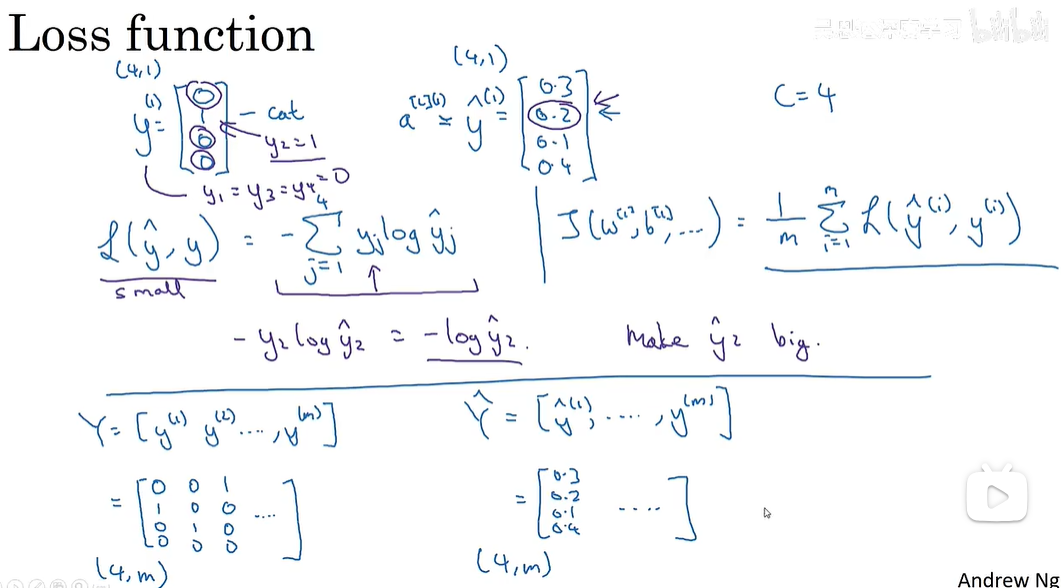 Loss function
(4,1)
y^{(1)} = [0 1 0 0] - cat
y₂=1
y₁ = y₃ = y₄ = 0
(4,1)
a^{[L](1)} = ŷ^{(1)} = [0.3 0.2 0.1 0.4]
C = 4
ℒ(ŷ, y) = - ∑_{j=1}^{4} yⱼ log ŷⱼ
small
J(w^{[1]}, b^{[1]}, ....) = 1/m ∑_{i=1}^{m} ℒ(ŷ^{(i)}, y^{(i)})
- y₂ log ŷ₂ = - log ŷ₂. Make ŷ₂ big.
Y = [y^{(1)} y^{(2)} ...., y^{(m)}]
= [0 0 1
1 0 0 ....
0 1 0
0 0 0]
(4,m)
Ŷ = [ŷ^{(1)}, ...., y^{(m)}]
= [0.3
0.2
0.1 ....
0.4]
(4,m)
Andrew Ng